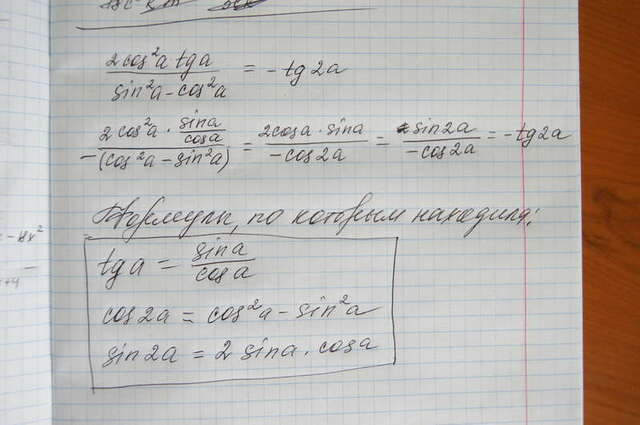 2cos²a tga / sin²a - cos²a = - tg2a
2cos²a · sina/cosa / -(cos²a - sin²a) = 2cosa · sina / -cos2a = sin2a / -cos2a = -tg2a
Формулы, по которым находила:
tga = sina / cosa
cos2a = cos²a - sin²a
sin2a = 2 sina · cosa